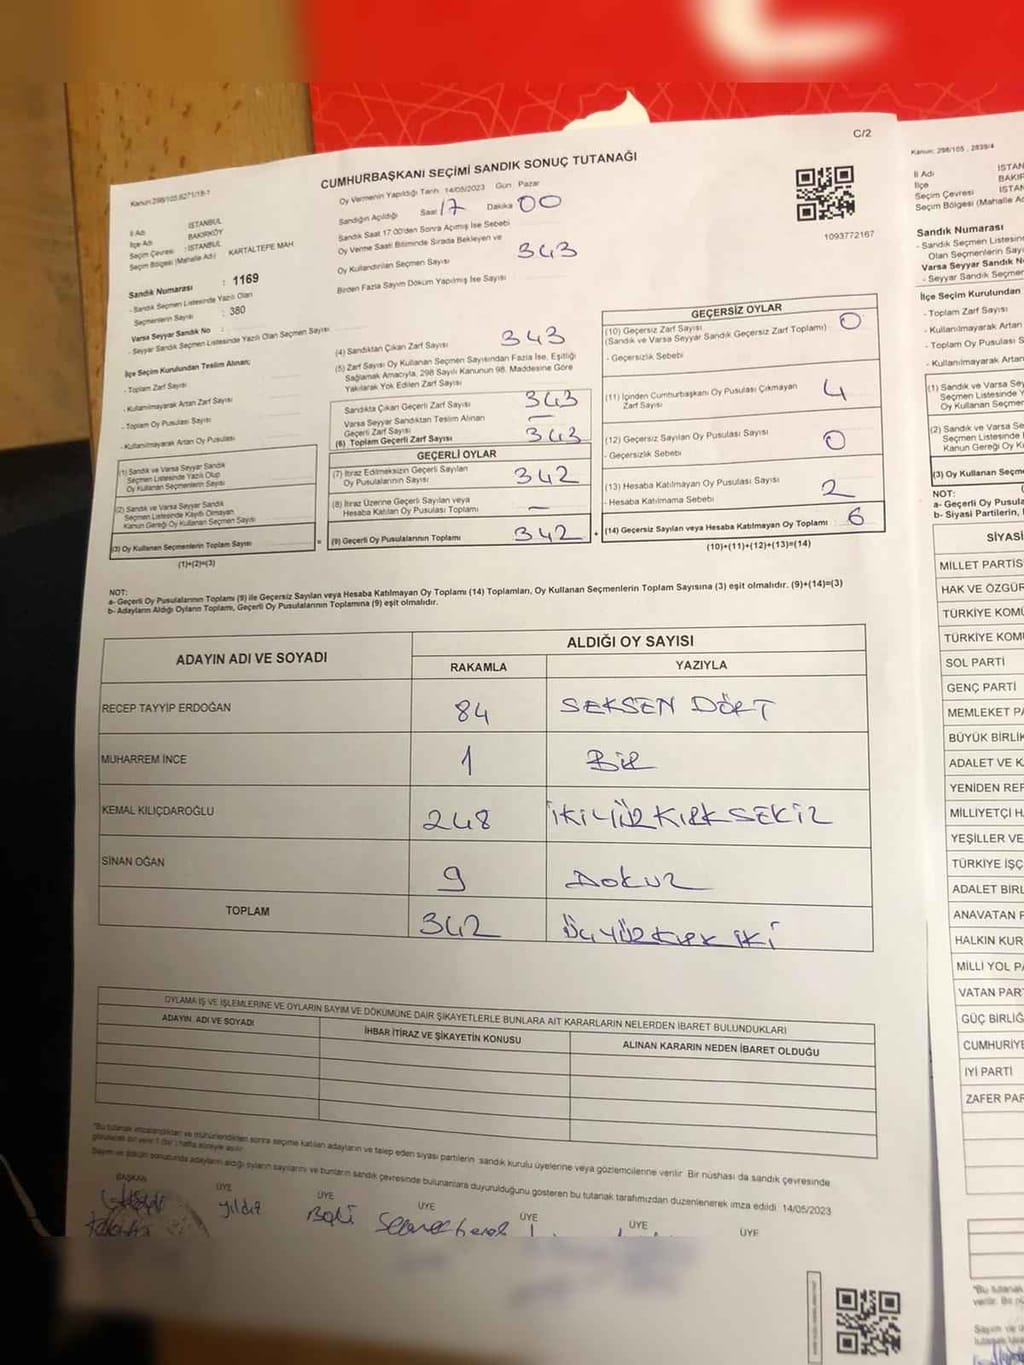 C/2
Kanun:298/105,6271/18-1
CUMHURBAŞKANI SEÇİMİ SANDIK SONUÇ TUTANAĞI
Oy Vermenin Yapıldığı Tarih 14/05/2023 Gün: Pazar
Sandığın Açıldığı Saat 17 Dakika 00
Sandık Saat 17.00'den Sonra Açılmış İse Sebebi
Oy Verme Saati Bitiminde Sırada Bekleyen ve
Oy Kullandırılan Seçmen Sayısı 343
Birden Fazla Sayım Döküm Yapılmış İse Sayısı
1093772167
İl Adı İSTANBUL
İlçe Adı BAKIRKÖY
Seçim Çevresi : İSTANBUL
Seçim Bölgesi (Mahalle Adı) KARTALTEPE MAH
Sandık Numarası : 1169
- Sandık Seçmen Listesinde Yazılı Olan
Seçmenlerin Sayısı : 380
Varsa Seyyar Sandık No :
- Seyyar Sandık Seçmen Listesinde Yazılı Olan Seçmen Sayısı
İlçe Seçim Kurulundan Teslim Alınan;
- Toplam Zarf Sayısı
- Kullanılmayarak Artan Zarf Sayısı
- Toplam Oy Pusulası Sayısı
- Kullanılmayarak Artan Oy Pusulası
(1) Sandık ve Varsa Seyyar Sandık
Seçmen Listesinde Yazılı Olup
Oy Kullanan Seçmenlerin Sayısı
(2) Sandık ve Varsa Seyyar Sandık
Seçmen Listesinde Kayıtlı Olmayan
Kanun Gereği Oy Kullanan Seçmen Sayısı
(3) Oy Kullanan Seçmenlerin Toplam Sayısı
(1)+(2)=(3)
(4) Sandıktan Çıkan Zarf Sayısı 343
(5) Zarf Sayısı Oy Kullanan Seçmen Sayısından Fazla İse, Eşitliği
Sağlamak Amacıyla, 298 Sayılı Kanunun 98. Maddesine Göre
Yakılarak Yok Edilen Zarf Sayısı
Sandıkta Çıkan Geçerli Zarf Sayısı 343
Varsa Seyyar Sandıktan Teslim Alınan
Geçerli Zarf Sayısı —
(6) Toplam Geçerli Zarf Sayısı 343
GEÇERLİ OYLAR
(7) İtiraz Edilmeksizin Geçerli Sayılan
Oy Pusulalarının Sayısı 342
(8) İtiraz Üzerine Geçerli Sayılan veya
Hesaba Katılan Oy Pusulası Toplamı —
= (9) Geçerli Oy Pusulalarının Toplamı 342 +
GEÇERSİZ OYLAR
(10) Geçersiz Zarf Sayısı 0
(Sandık ve Varsa Seyyar Sandık Geçersiz Zarf Toplamı)
- Geçersizlik Sebebi
(11) İçinden Cumhurbaşkanı Oy Pusulası Çıkmayan
Zarf Sayısı 4
(12) Geçersiz Sayılan Oy Pusulası Sayısı 0
- Geçersizlik Sebebi
(13) Hesaba Katılmayan Oy Pusulası Sayısı 2
- Hesaba Katılmama Sebebi
(14) Geçersiz Sayılan veya Hesaba Katılmayan Oy Toplamı 6
(10)+(11)+(12)+(13)=(14)
NOT:
a- Geçerli Oy Pusulaları Toplamı (9) ile Geçersiz Sayılan veya Hesaba Katılmayan Oy Toplamı (14) Toplamları, Oy Kullanan Seçmenlerin Toplam Sayısına (3) eşit olmalıdır. (9)+(14)=(3)
b- Adayların Aldığı Oyların Toplamı, Geçerli Oy Pusulalarının Toplamına (9) eşit olmalıdır.
ADAYIN ADI VE SOYADI
ALDIĞI OY SAYISI
RAKAMLA YAZIYLA
RECEP TAYYİP ERDOĞAN 84 SEKSEN DÖRT
MUHARREM İNCE 1 BİR
KEMAL KILIÇDAROĞLU 248 İKİYÜZ KIRK SEKİZ
SİNAN OĞAN 9 DOKUZ
TOPLAM 342 ÜÇ YÜZ KIRK İKİ
OYLAMA İŞ VE İŞLEMLERİNE VE OYLARIN SAYIM VE DÖKÜMÜNE DAİR ŞİKAYETLERLE BUNLARA AİT KARARLARIN NELERDEN İBARET BULUNDUKLARI
ADAYIN ADI VE SOYADI
İHBAR İTİRAZ VE ŞİKAYETİN KONUSU
ALINAN KARARIN NEDEN İBARET OLDUĞU
"Bu tutanak imzalandıktan ve mühürlendikten sonra seçime katılan adayların ve talep eden siyasi partilerin sandık kurulu üyelerine veya gözlemcilerine verilir. Bir nüshası da sandık çevresinde
görülecek bir yere 1 (bir) hafta süreyle asılır
Sayım ve döküm sonucunda adayların aldığı oyların sayılarını ve bunların sandık çevresinde bulunanlara duyurulduğunu gösteren bu tutanak tarafımızdan düzenlenerek imza edildi. 14/05/2023
BAŞKAN ÜYE ÜYE ÜYE ÜYE ÜYE ÜYE
yıldız
Kanun: 298/105 , 2839/4
İl Adı İSTAN
İlçe BAKIR
Seçim Çevresi İSTAN
Seçim Bölgesi (Mahalle Ad
Sandık Numarası
- Sandık Seçmen Listesin
Olan Seçmenlerin Sayı
Varsa Seyyar Sandık N
- Seyyar Sandık Seçmen
İlçe Seçim Kurulundan
- Toplam Zarf Sayısı
- Kullanılmayarak Artan
- Toplam Oy Pusulası S
- Kullanılmayarak Artan
(1) Sandık ve Varsa Sey
Seçmen Listesinde Y
Oy Kullanan Seçmen
(2) Sandık ve Varsa Se
Seçmen Listesinde
Kanun Gereği Oy K
(3) Oy Kullanan Seçm
NOT:
a- Geçerli Oy Pusula
b- Siyasi Partilerin,
SİYASİ
MİLLET PARTİS
HAK VE ÖZGÜR
TÜRKİYE KOMÜ
TÜRKİYE KOM
SOL PARTİ
GENÇ PARTİ
MEMLEKET PA
BÜYÜK BİRLİK
ADALET VE K
YENİDEN REF
MİLLİYETÇİ H
YEŞİLLER VE
TÜRKİYE İŞÇ
ADALET BİRL
ANAVATAN P
HALKIN KUR
MİLLİ YOL PA
VATAN PART
GÜÇ BİRLİĞ
CUMHURİYE
İYİ PARTİ
ZAFER PAR
"Bu tutanak
Sayım ve d